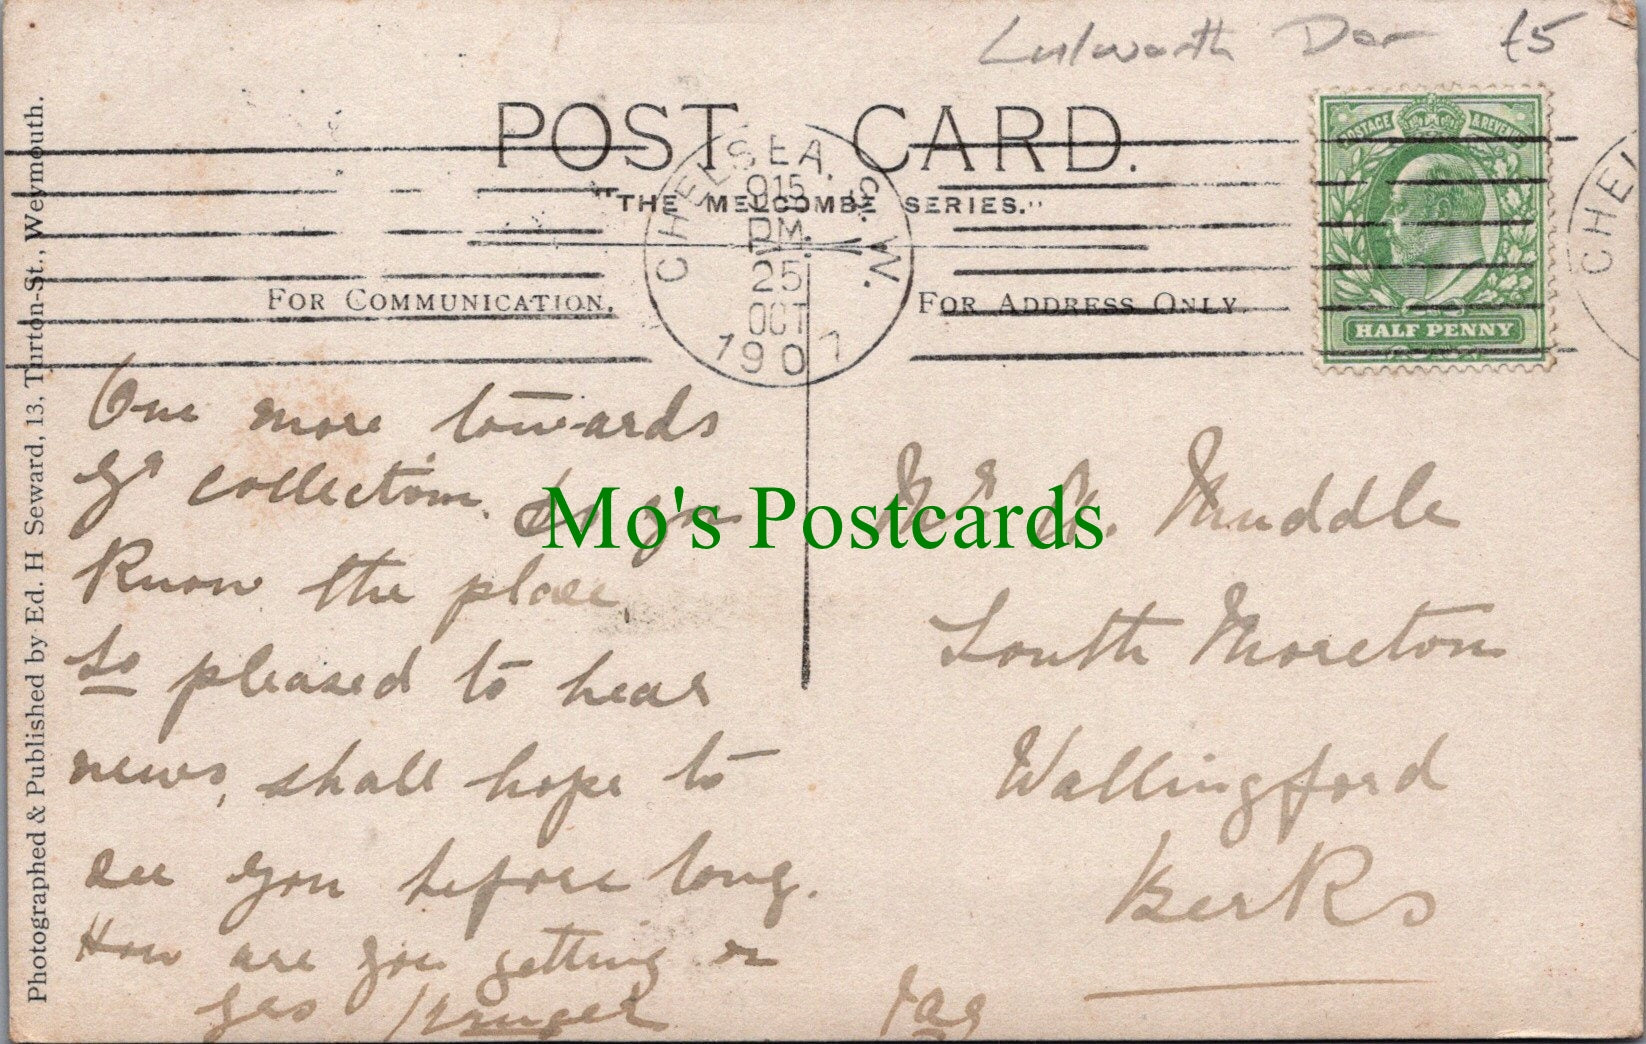 Lulworth Dor £5
POST CARD.
"THE MELCOMBE SERIES."
CHELSEA. S.W.
9 15 PM.
25 OCT
1907
POSTAGE & REVENUE
HALF PENNY
CHEL
FOR COMMUNICATION.
FOR ADDRESS ONLY
Photographed & Published by Ed. H Seward, 13, Turton-St., Weymouth.
One more towards
yr collection. Do you
know the place,
So pleased to hear
news, shall hope to
see you before long.
How are you getting on
Mo's Postcards
Muddle
South Moreton
Wallingford
Berks